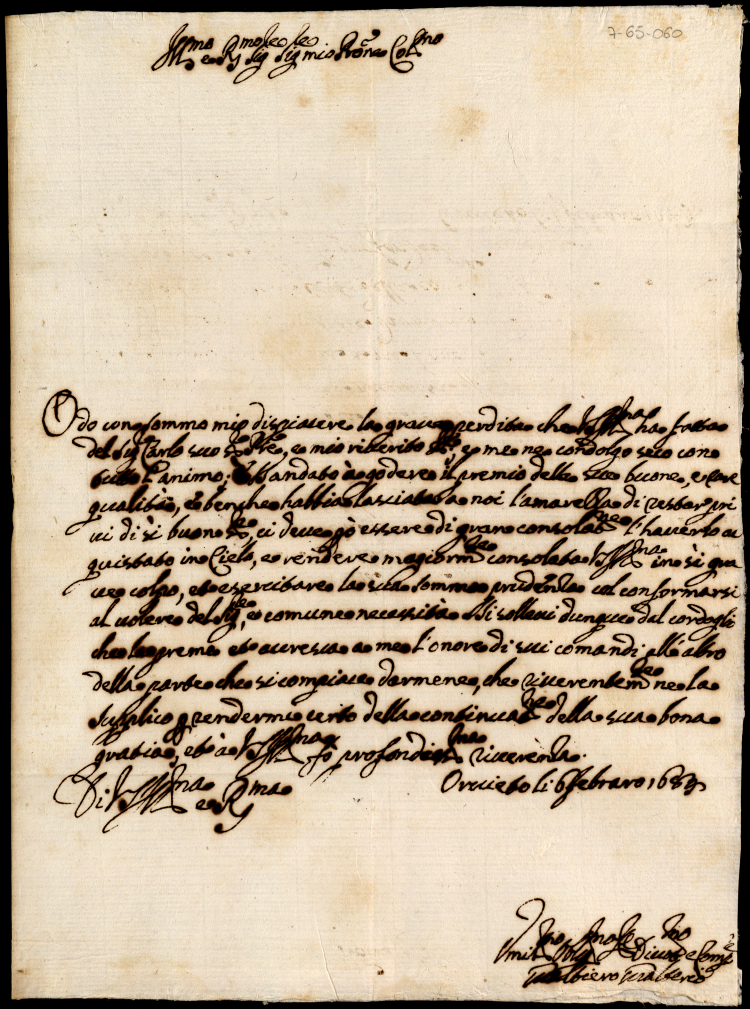 7-65-060
Ill.mo e R.mo Sig.re Sig.re mio Pron.e Col.mo
Odo con sommo mio dispiacere la grave perdita che V.S. Ill.ma ha fatta
del Sig. Carlo suo, e mio riverito, e me ne condolgo seco con
tutto l'animo; andato à godere il premio delle sue buone, e rare
qualità, e benche habbia lasciata à noi l'amarezza di restar pri
vi di sì buon Sig.re, ci deve però essere di gran consolat.ne l'haverlo ac
quistato in Cielo, e rendere magiorm.te consolata V.S. Ill.ma in sì gra
ve colpo, et esercitare la sua somma prudenza col conformarsi
al volere del Sig.re, e comune necessità. Si sollevi dunque dal cordoglio
che la preme et accresca a me l'onore di suoi comandi all'altro
della parte che si compiace darmene, che riverentem.te ne la
supplico p rendermi certo della continuat.ne della sua bona
gratia, et à V.S. Ill.ma fò profondiss.ma riverenza.
Di V.S. Ill.ma e R.ma
Orvieto li 6 Febraro 168
Umil.mo Devot.mo